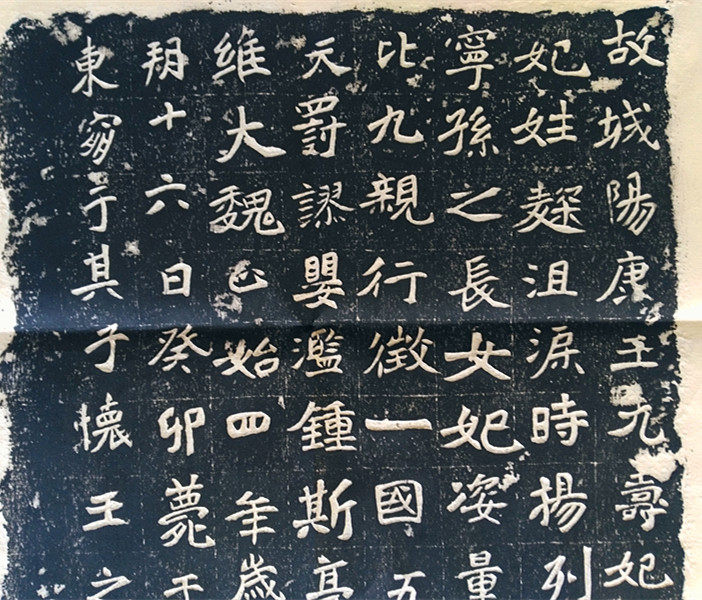 故城陽康王元壽妃
妃姓麴沮渠時揚列
寧孫之長女妃姿量
比九親行徵一國五
天罰謬嬰濫鍾斯亭
維大魏正始四年歲
朔十六日癸卯薨于
東窮于其子懷王之